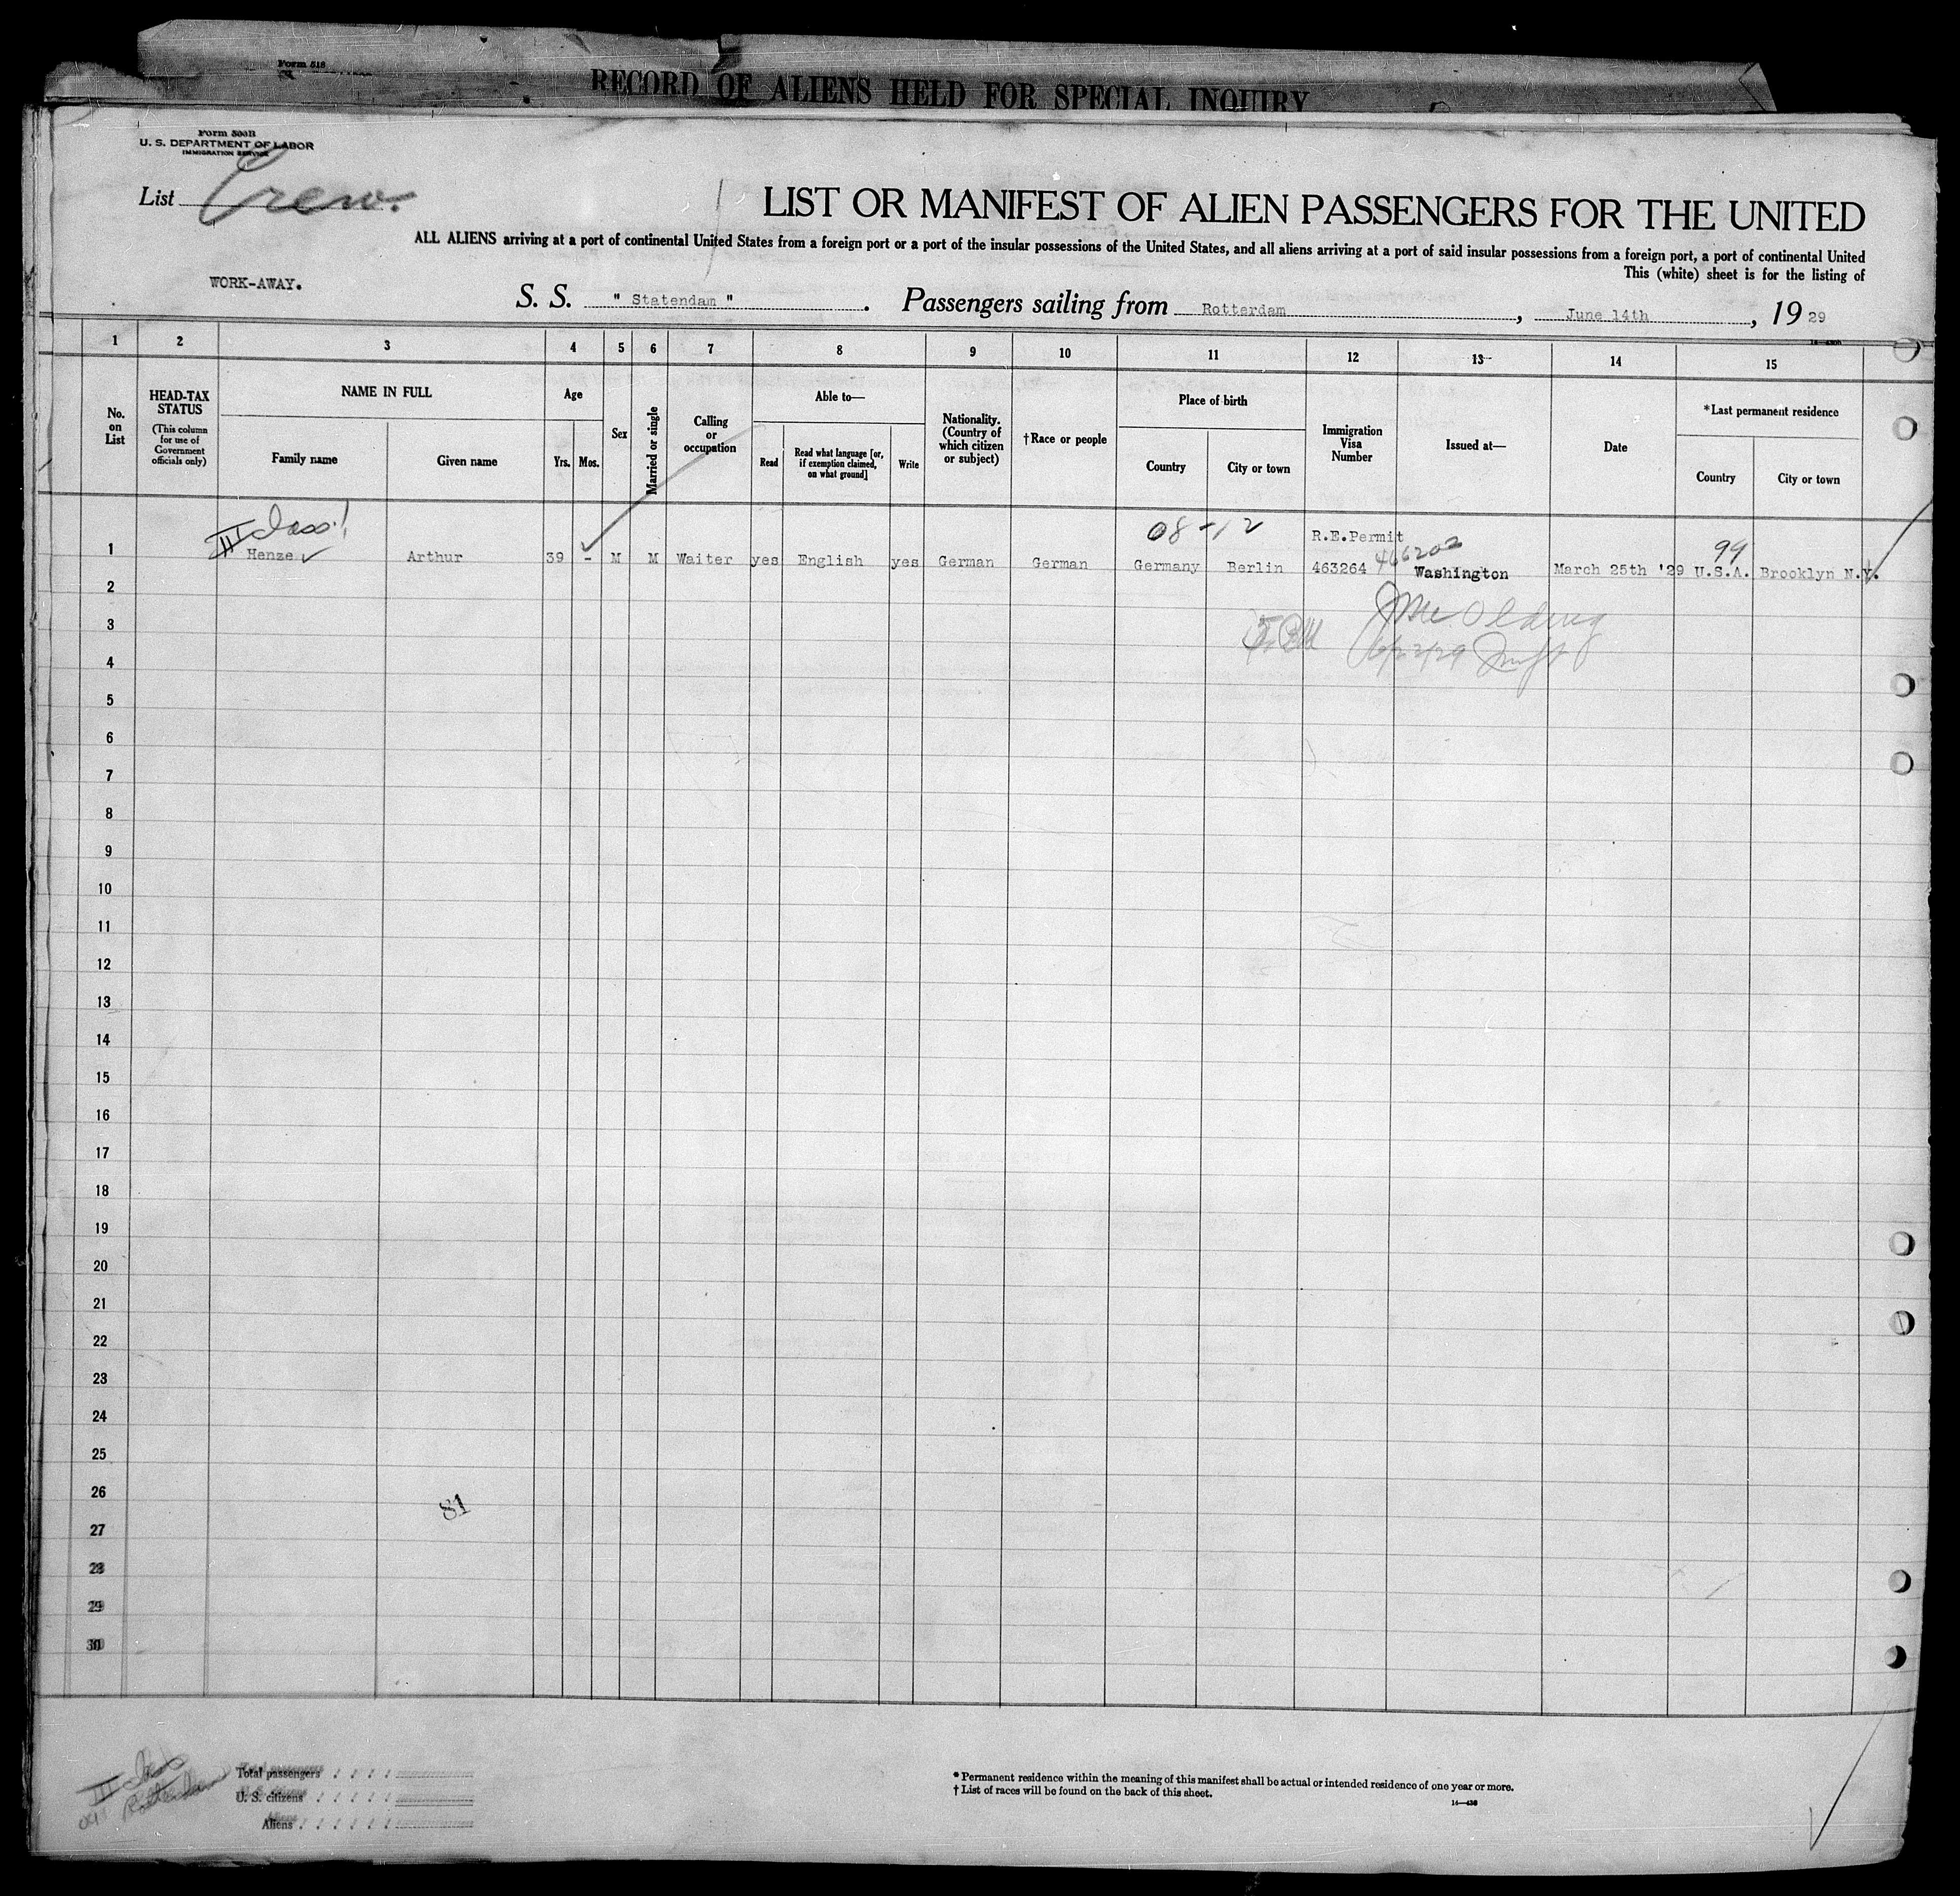 Form 518
RECORD OF ALIENS HELD FOR SPECIAL INQUIRY
Form 500B
U. S. DEPARTMENT OF LABOR
IMMIGRATION SERVICE
List Crew.
LIST OR MANIFEST OF ALIEN PASSENGERS FOR THE UNITED
ALL ALIENS arriving at a port of continental United States from a foreign port or a port of the insular possessions of the United States, and all aliens arriving at a port of said insular possessions from a foreign port, a port of continental United
This (white) sheet is for the listing of
WORK-AWAY.
S. S. " Statendam ". Passengers sailing from Rotterdam, June 14th, 1929
1 2 3 4 5 6 7 8 9 10 11 12 13 14 15
No. on List
HEAD-TAX STATUS
(This column for use of Government officials only)
NAME IN FULL
Family name
Given name
Age
Yrs.
Mos.
Sex
Married or single
Calling or occupation
Able to—
Read
Read what language [or, if exemption claimed, on what ground]
Write
Nationality. (Country of which citizen or subject)
†Race or people
Place of birth
Country
City or town
Immigration Visa Number
Issued at—
Date
*Last permanent residence
Country
City or town
III Class!
08-12
R.E.Permit
466202
99
1 Henze Arthur 39 - M M Waiter yes English yes German German Germany Berlin 463264 Washington March 25th '29 U.S.A. Brooklyn N.Y.
2
3
4
5
6
7
8
9
10
11
12
13
14
15
16
17
18
19
20
21
22
23
24
25
26
81
27
28
29
30
III Class
Total passengers
U. S. citizens
Aliens
* Permanent residence within the meaning of this manifest shall be actual or intended residence of one year or more.
† List of races will be found on the back of this sheet.
14—436